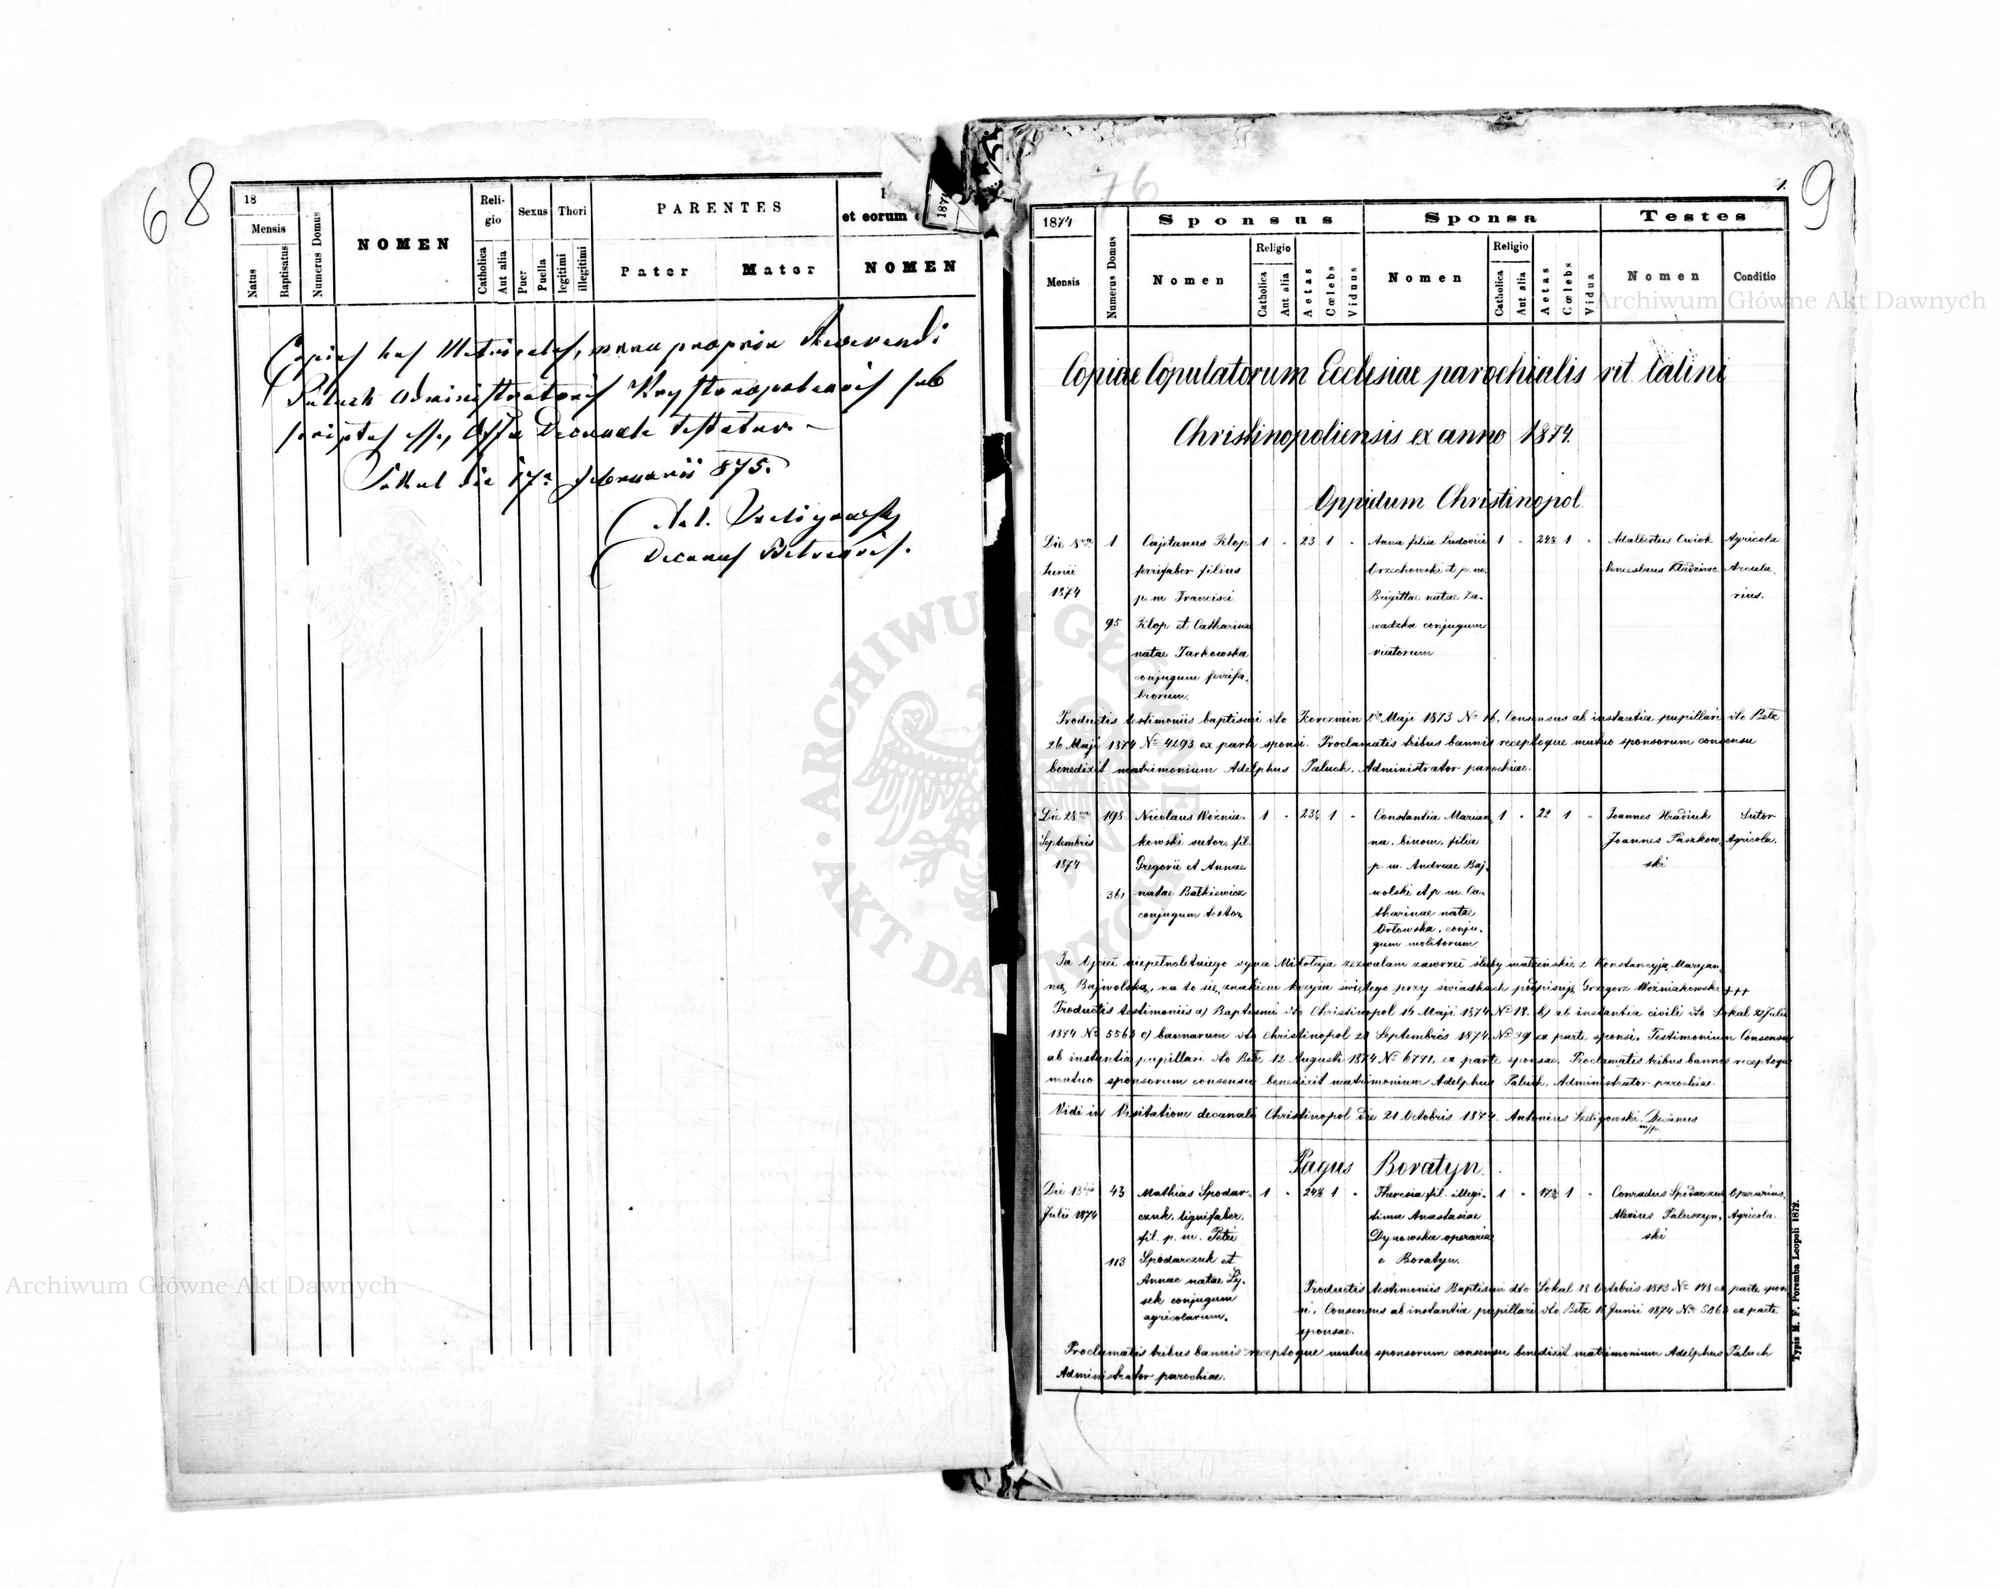 68
18
Mensis
Natus
Baptisatus
Numerus Domus
NOMEN
Reli-
gio
Catholica
Aut alia
Sexus
Puer
Puella
Thori
legitimi
illegitimi
PARENTES
Pater
Mater
et eorum
NOMEN
Copias has Metricales, manu propria Reverendi
Paluch Administratoris Krystynopoliensis sub
scriptas esse, Offm Decanale testatur.
Sokal die 17a februarii 875.
Ant. Szeligowski
Decanus Belzensis.
1874
76
1.
9
1874
Mensis
Numerus Domus
Sponsus
Nomen
Religio
Catholica
Aut alia
Aetas
Cœlebs
Viduus
Sponsa
Nomen
Religio
Catholica
Aut alia
Aetas
Cœlebs
Vidua
Testes
Nomen
Conditio
Copiae Copulatorum Ecclesiae parochialis rit. latini
Christinopoliensis ex anno 1874.
Oppidum Christinopol.
Die 8va 1 Cajetanus Klop 1 - 23 1 - Anna filia Ludovici 1 - 24 1 - Adalbertus Cwiok Agricola
Junii ferrifaber filius Orzechowski et p. m. Venceslaus Arcula-
1874 p. m. Francisci Brigittae natae Za- rius.
95 Klop et Catharinae wadzka conjugum
natae Tarkowska
conjugum ferrifa-
brorum.
Productis testimoniis baptismi dto Korczmin Maji 1873 No 16. Consensus ab instantia pupillari dto Belz
26 Maji 1874 No 4293 ex parte sponsi. Proclamatis tribus bannis receptoque mutuo sponsorum consensu
benedixit matrimonium Adelphus Paluch, Administrator parochiae.
Die 28va 198 Nicolaus Woznia- 1 - 23 1 - Constantia Marian- 1 - 22 1 - Joannes Hradiuk Sutor
Septembris kowski sutor, fil. na binom. filia Joannes Paszkow- Agricola.
1874 Gregorii et Annae p. m. Andreae Baj- ski
361 natae Batkiewicz wolski et p. m. Ca-
conjugum textor. tharinae natae
Orłowska, conju-
gum molitorum
Ja Ojciec niepełnoletniego syna Mikołaja zezwalam zawrzeć śluby małżeńskie z Konstancyją Maryan-
ną Bajwolską, na to się znakiem krzyża świętego przy świadkach podpisuję Grzegorz Woźniakowski +++
Productis testimoniis a) Baptismi dto Christinopol 16 Maji 1874 No 18. b) ab instantia civili dto Sokal 21 Julii
1874 No 5563 c) bannorum dto Christinopol 28 Septembris 1874 No 39 ex parte sponsi. Testimonium Consensus
ab instantia pupillari dto Belz 12 Augusti 1874 No 6771. ex parte sponsae. Proclamatis tribus bannis receptoque
mutuo sponsorum consensu benedixit matrimonium Adelphus Paluch, Administrator parochiae.
Vidi in Visitatione decanali Christinopol die 21 Octobris 1874. Antonius Szeligowski, Decanus
m/p.
Pagus Boratyn.
Die 13tio 43 Mathias Spodar- 1 - 24 1 - Theresia fil. illegi- 1 - 17 1 - Conradus Operarius,
Julii 1874 czuk, lignifaber, tima Anastasiae Alexius Paluszyn- Agricola.
fil. p. m. Petri Dynowska operariae ski
113 Spodarczuk et e Boratyn.
Annae natae Ły-
sek conjugum
agricolarum.
Productis testimoniis Baptismi dto Sokal 18 Octobris 1873 No 148 ex parte spon-
si. Consensus ab instantia pupillari dto Belz Junii 1874 No 5063 ex parte
sponsae.
Proclamatis tribus bannis receptoque mutuo sponsorum consensu benedixit matrimonium Adelphus Paluch
Administrator parochiae.
Typis M. F. Poremba Leopoli 1872.
Archiwum Główne Akt Dawnych
Archiwum Główne Akt Dawnych
ARCHIWUM GŁÓWNE
AKT DAWNYCH